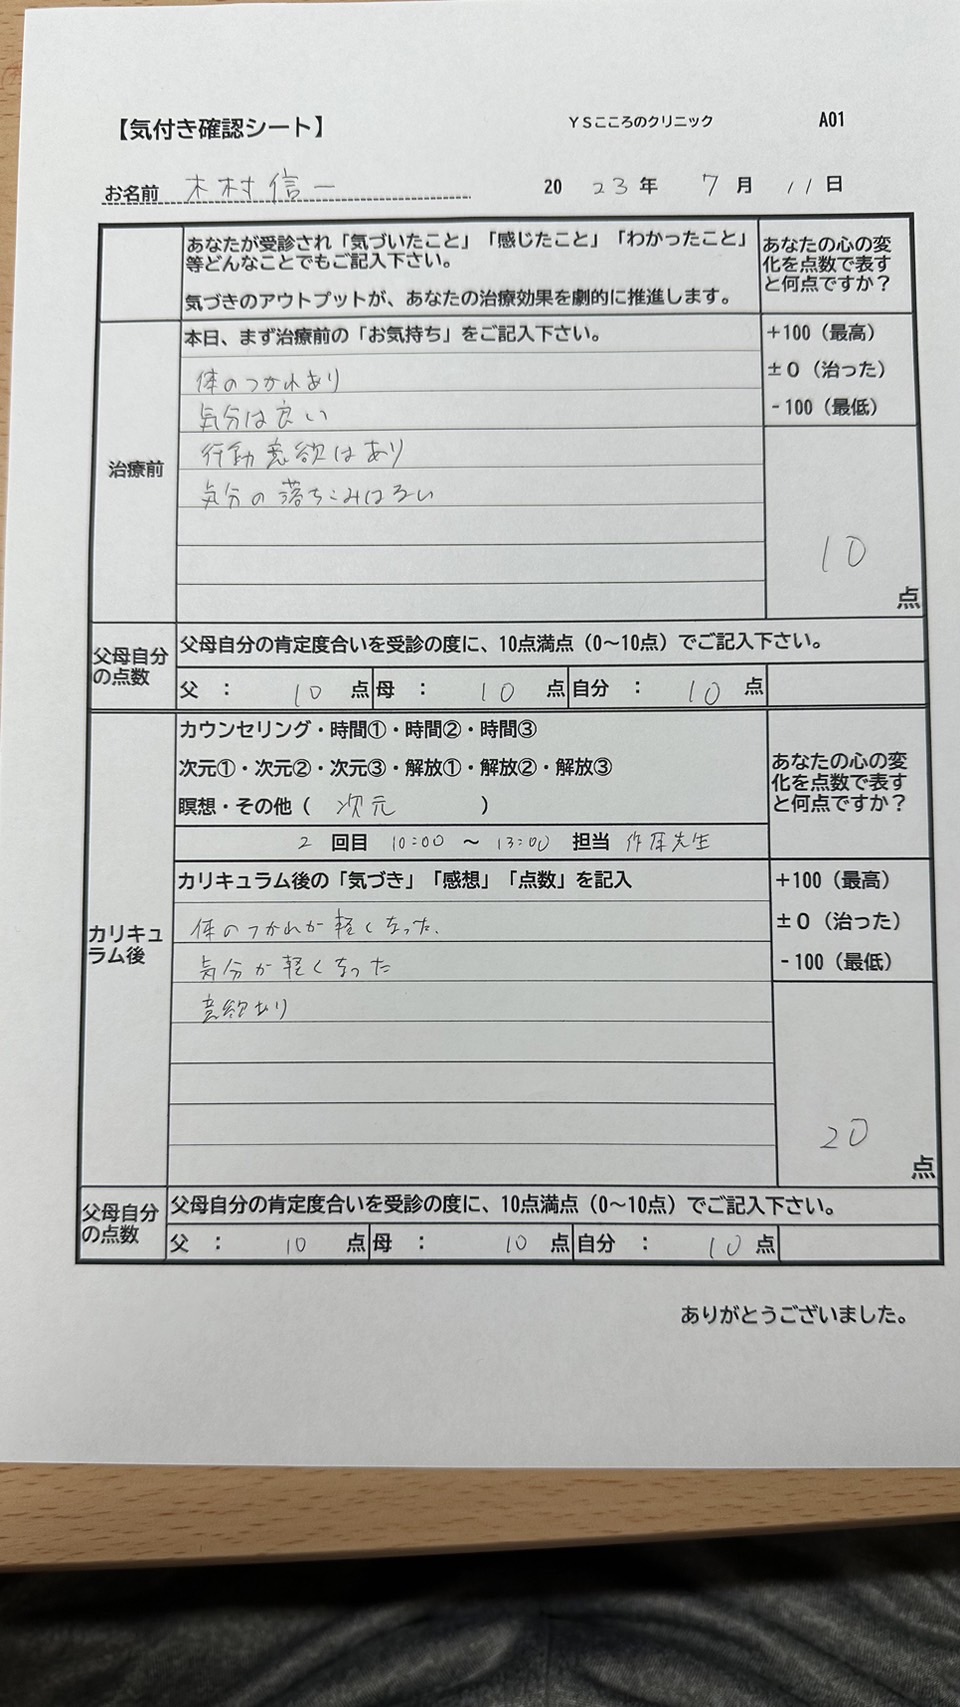 【気付き確認シート】 YSこころのクリニック A01
お名前 木村信一 2023年 7月 11日
あなたが受診され「気づいたこと」「感じたこと」「わかったこと」
等どんなことでもご記入下さい。
気づきのアウトプットが、あなたの治療効果を劇的に推進します。
あなたの心の変
化を点数で表す
と何点ですか？
治療前
本日、まず治療前の「お気持ち」をご記入下さい。
体のつかれあり
気分は良い
行動意欲はあり
気分の落ちこみはない
+100（最高）
±0（治った）
-100（最低）
10
点
父母自分
の点数
父母自分の肯定度合いを受診の度に、10点満点（0～10点）でご記入下さい。
父 ： 10 点 母 ： 10 点 自分 ： 10 点
カウンセリング・時間①・時間②・時間③
次元①・次元②・次元③・解放①・解放②・解放③
瞑想・その他（ 次元 ）
2 回目 10:00 ～ 13:00 担当 先生
あなたの心の変
化を点数で表す
と何点ですか？
カリキュ
ラム後
カリキュラム後の「気づき」「感想」「点数」を記入
体のつかれが軽くなった.
気分が軽くなった
意欲あり
+100（最高）
±0（治った）
-100（最低）
20
点
父母自分
の点数
父母自分の肯定度合いを受診の度に、10点満点（0～10点）でご記入下さい。
父 ： 10 点 母 ： 10 点 自分 ： 10 点
ありがとうございました。